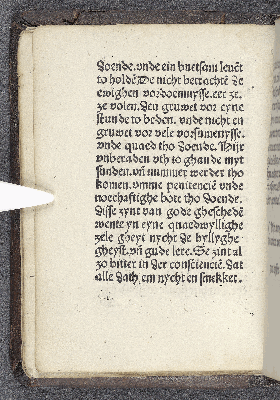 doende. vnde ein buetsam leuēt
to holdē De nicht betrachtē de
ewighen vordoemnysse. eer ze.
ze volen. den gruwet vor eyne
stunde to beden. vnde nicht en
gruwet vor vele vorsumenysse.
vnde quaed tho doende. Myt
vnberaden vth to ghaude myt
sunden. vn̄ nummer wedder tho
komen. vmme penitencië vnde
noethaftighe bote tho doende.
Disse zynt van gode ghescheden
wente yn eyne quaedwyllighe
zele gheyt nycht de hyllyghe
gheyst. vn̄ gude lere. Se zint al
zo bitter in der consciencië. dat
alle dath em nycht en smekket.